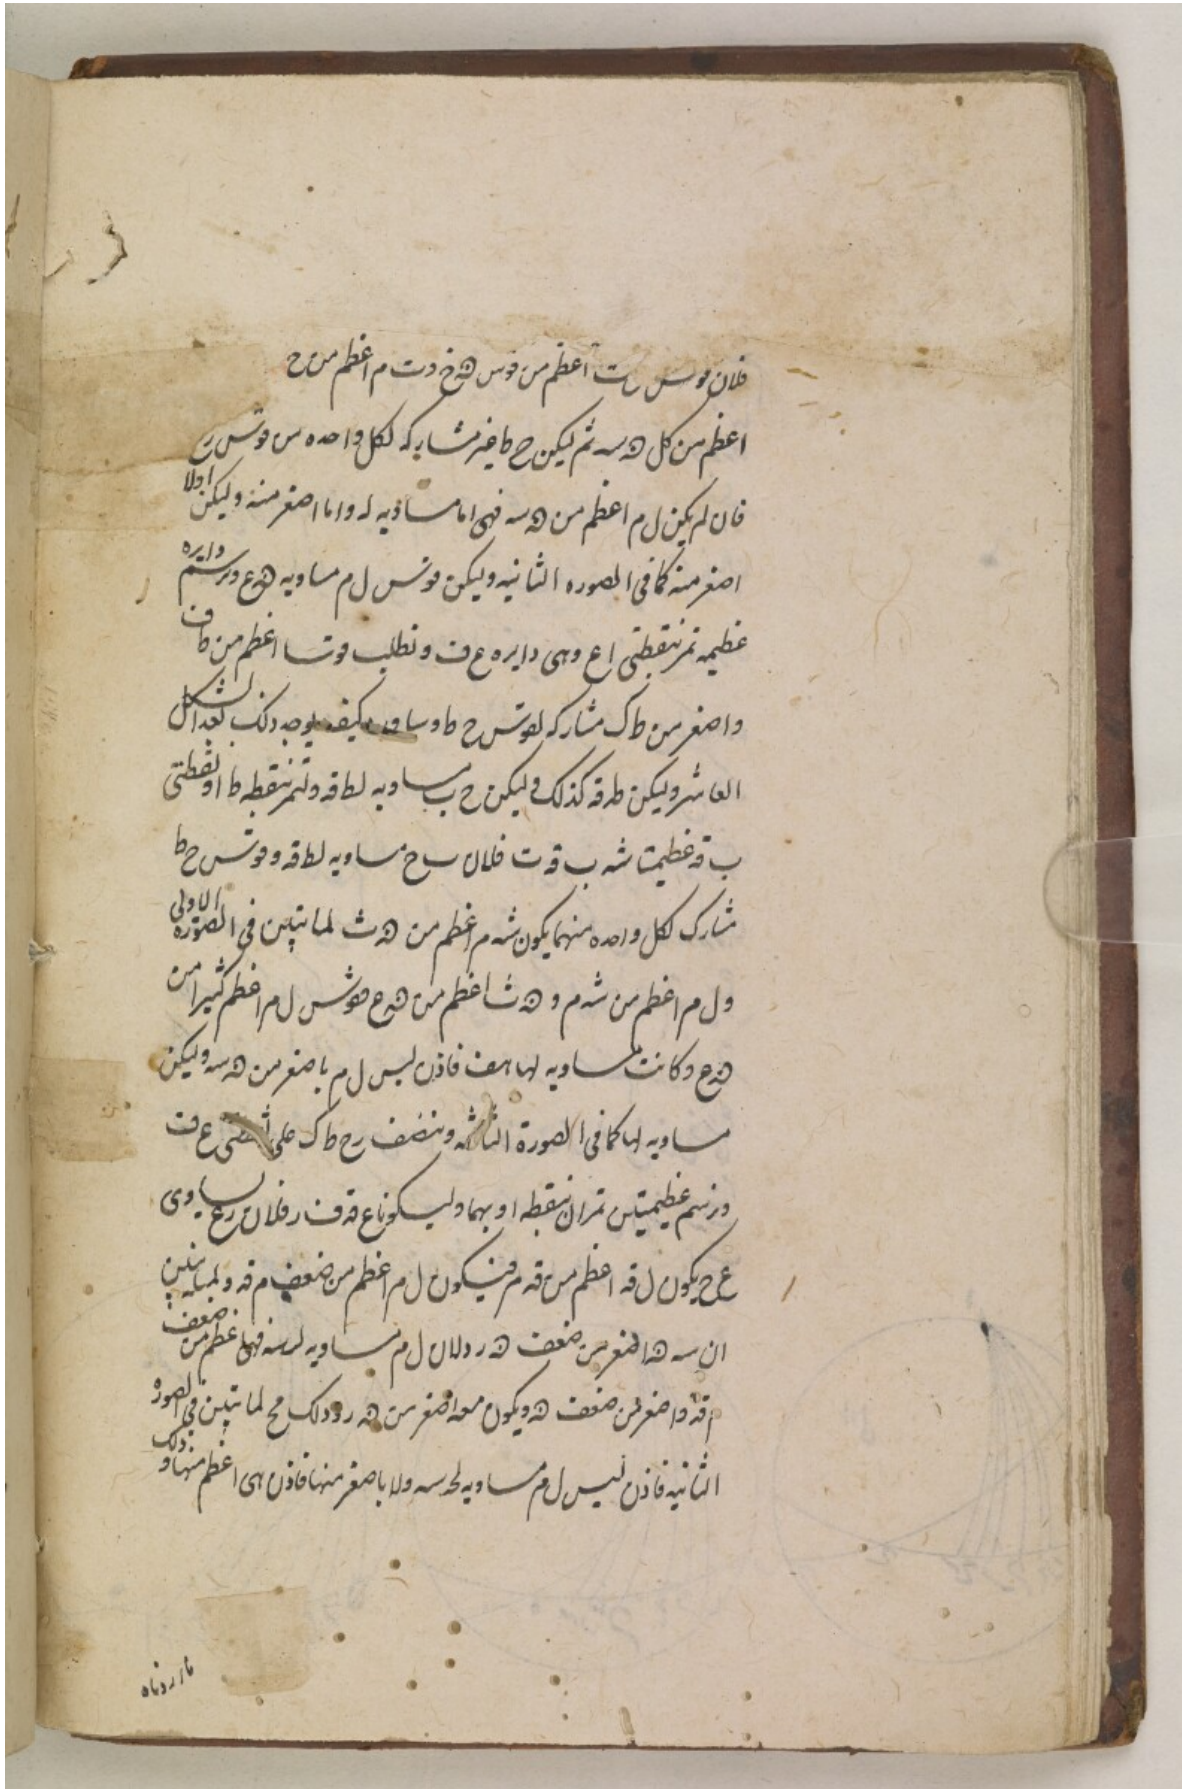 فلان قوس رت اعظم من قوس هخ وت م اعظم من ح
اعظم من كل هسه ثم ليكن ح ط غير مشاركه لكل واحده من قوتس ر
فان لم يكن ل م اعظم من هسه فهى اما مساويه له واما اصغر منه وليكن اولا
اصغر منه كما فى الصوره الثانيه وليكن قوتس ل م مساويه هع ونرسم دايره
عظيمه تمر بنقطتى ا ع وهى دايره ع ف ونطلب قوسا اعظم من ط ف
واصغر من ط ك مشاركه لقوتس ح ط وسابين كيف يوجد ذلك بعد الشكل
العاشر وليكن ط قه كذلك وليكن ح ب مساويه لط قه ولتمر بنقطه ط ا ونقطتى
ب قه عظيمتا شه ب قه ت فلان ب ح مساويه لط قه وقوتس ح ط
مشارك لكل واحده منهما يكون شه م اعظم من ه ث لما تبين فى الصوره الاولى
ول م اعظم من شه م و ه ث اعظم من هع فقوتس ل م اعظم كثيرا من
هع وكانت مساويه لها هف فاذن ليس ل م باصغر من هسه وليكن
مساويه لها كما فى الصورة الثالثه وننصف رح ط ك على نقطتى ع ف
ونرسم عظيمتين تمران بنقطه ا وبهما وليكونا ع قه ف ر فلان رع يساوى
ع ح يكون ل قه اعظم من قه م فيكون ل م اعظم من ضعف م قه ولمثله نبين
ان سه ه اصغر من ضعف ه ر ولان ل م مساويه له سه فهى اعظم من ضعف
م قه واصغر من ضعف ه ر ويكون م قه اصغر من ه ر وذلك مح لما تبين فى الصوره
الثانيه فاذن ليس ل م مساويه لهسه ولا باصغر منها فاذن هى اعظم منها وذلك
ما اردناه